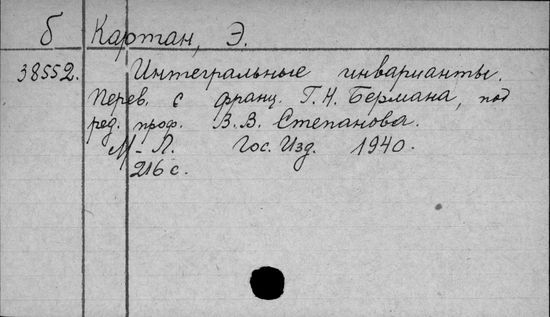 б Картан, Э.
38552. Интегральные инварианты.
Перев. с франц. Г. Н. Бермана, под
ред. проф. В. В. Степанова.
М - Л. Гос. Изд. 1940.
216 с.